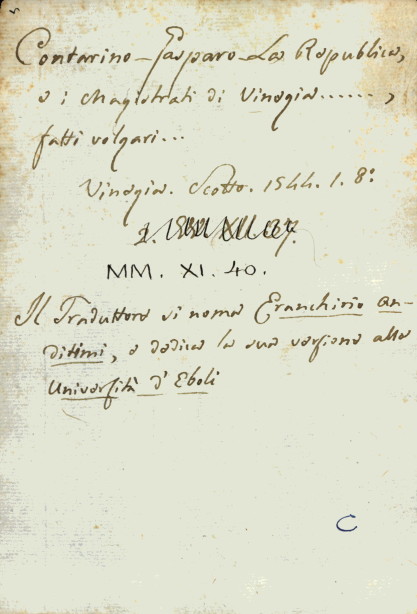 Contarino - Gasparo - La Republica,
e i Magistrati di Vinegia......,
fatti volgari...
Vinegia. Scotto. 1544. 1. 8º
MM. XI. 40.
Il Traduttore si noma Eranchirio An-
ditimi, e dedica la sua versione alla
Università d'Eboli
C